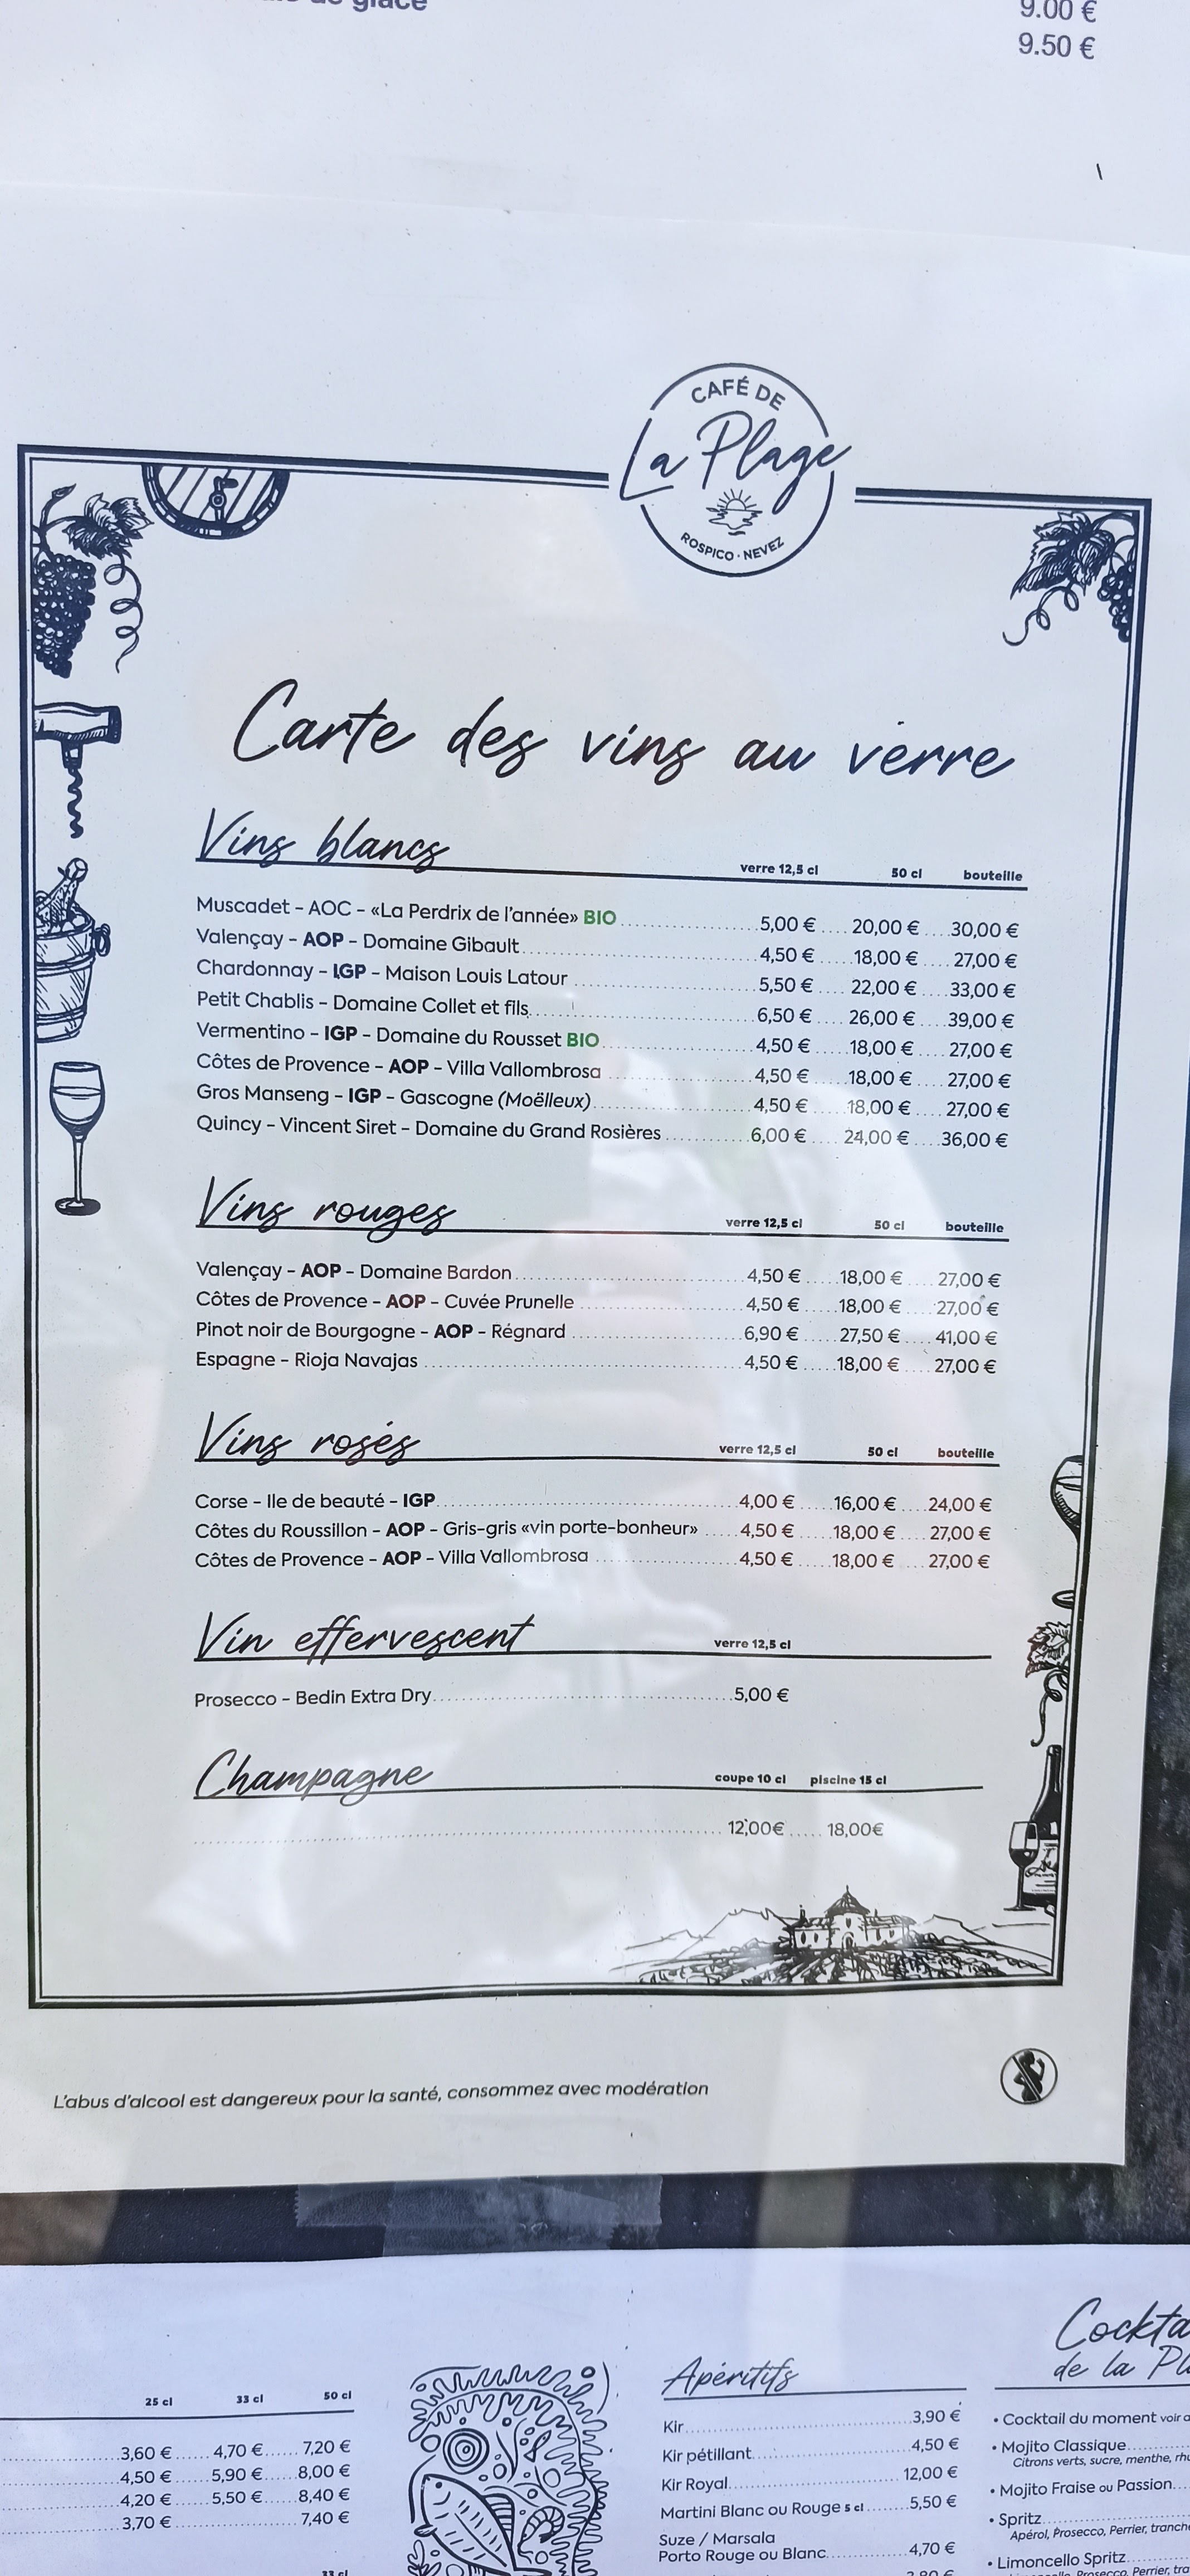 9.00 €
9.50 €
CAFÉ DE
La Plage
ROSPICO · NEVEZ
Carte des vins au verre
Vins blancs verre 12,5 cl 50 cl bouteille
Muscadet - AOC - «La Perdrix de l'année» BIO 5,00 € 20,00 € 30,00 €
Valençay - AOP - Domaine Gibault 4,50 € 18,00 € 27,00 €
Chardonnay - IGP - Maison Louis Latour 5,50 € 22,00 € 33,00 €
Petit Chablis - Domaine Collet et fils 6,50 € 26,00 € 39,00 €
Vermentino - IGP - Domaine du Rousset BIO 4,50 € 18,00 € 27,00 €
Côtes de Provence - AOP - Villa Vallombrosa 4,50 € 18,00 € 27,00 €
Gros Manseng - IGP - Gascogne (Moëlleux) 4,50 € 18,00 € 27,00 €
Quincy - Vincent Siret - Domaine du Grand Rosières 6,00 € 24,00 € 36,00 €
Vins rouges verre 12,5 cl 50 cl bouteille
Valençay - AOP - Domaine Bardon 4,50 € 18,00 € 27,00 €
Côtes de Provence - AOP - Cuvée Prunelle 4,50 € 18,00 € 27,00 €
Pinot noir de Bourgogne - AOP - Régnard 6,90 € 27,50 € 41,00 €
Espagne - Rioja Navajas 4,50 € 18,00 € 27,00 €
Vins rosés verre 12,5 cl 50 cl bouteille
Corse - Ile de beauté - IGP 4,00 € 16,00 € 24,00 €
Côtes du Roussillon - AOP - Gris-gris «vin porte-bonheur» 4,50 € 18,00 € 27,00 €
Côtes de Provence - AOP - Villa Vallombrosa 4,50 € 18,00 € 27,00 €
Vin effervescent verre 12,5 cl
Prosecco - Bedin Extra Dry 5,00 €
Champagne coupe 10 cl piscine 15 cl
12,00€ 18,00€
L'abus d'alcool est dangereux pour la santé, consommez avec modération
25 cl 33 cl 50 cl
3,60 € 4,70 € 7,20 €
4,50 € 5,90 € 8,00 €
4,20 € 5,50 € 8,40 €
3,70 € 7,40 €
33 cl
Apéritifs
Kir 3,90 €
Kir pétillant 4,50 €
Kir Royal 12,00 €
Martini Blanc ou Rouge 5 cl 5,50 €
Suze / Marsala
Porto Rouge ou Blanc 4,70 €
de la
• Cocktail du moment voir
• Mojito Classique
Citrons verts, sucre, menthe,
• Mojito Fraise ou Passion
• Spritz
Apérol, Prosecco, Perrier,
• Limoncello Spritz